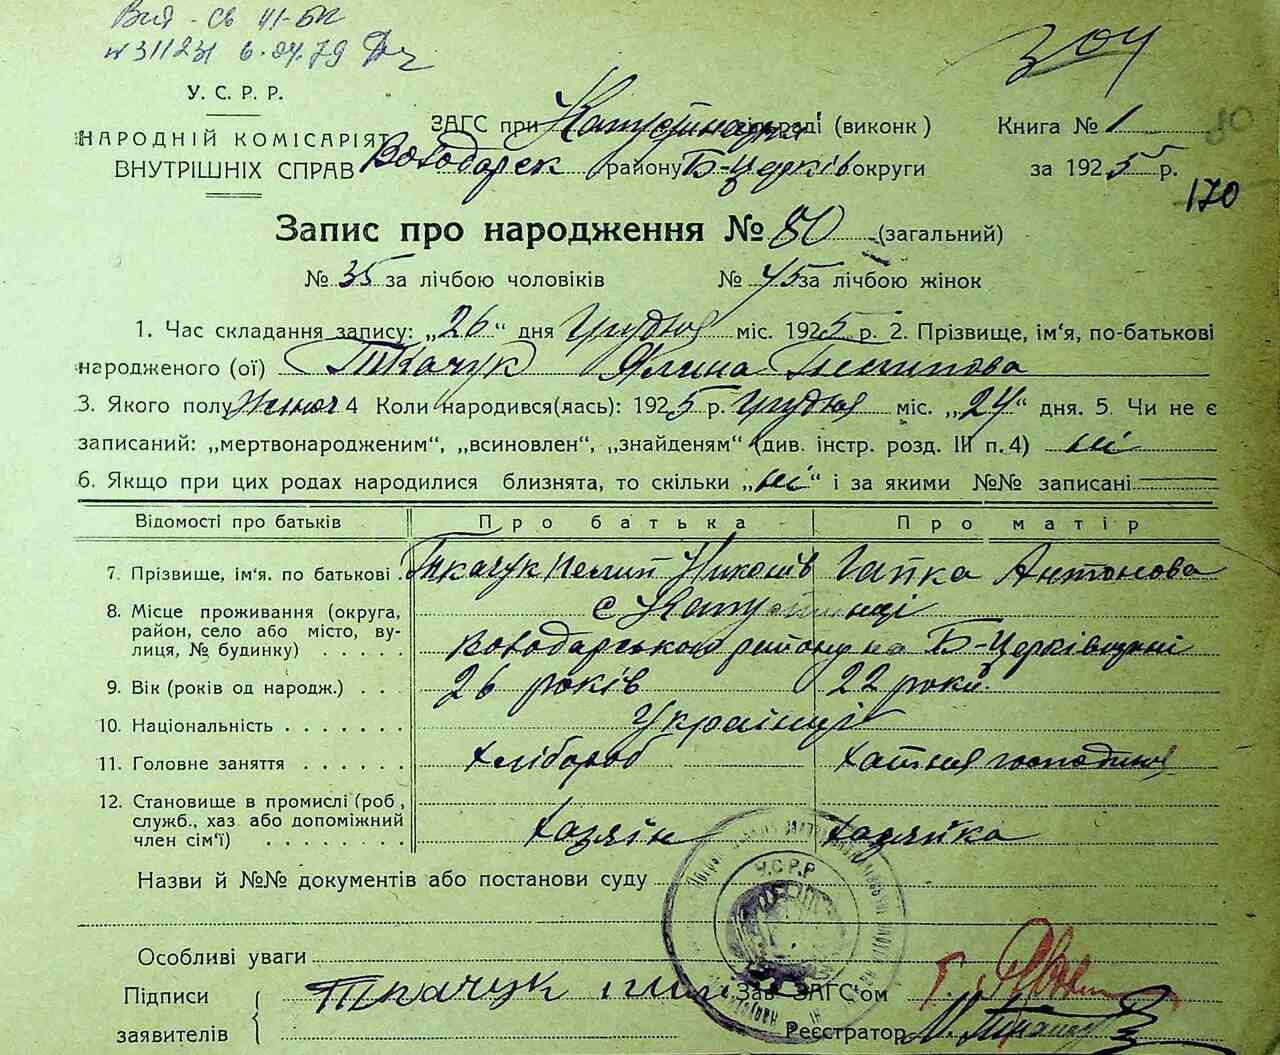 Вид - св
6.04.79
304
У. С. Р. Р.
НАРОДНІЙ КОМІСАРІЯТ
ВНУТРІШНІХ СПРАВ
ЗАГС при Капустинськ раді (виконк)
Володарск району Б-Церків округи
Книга № 1
за 1925 р.
170
Запис про народження № 80 (загальний)
№ 35 за лічбою чоловіків № 45 за лічбою жінок
1. Час складання запису: „26“ дня Грудня міс. 1925 р. 2. Прізвище, ім'я, по-батькові
народженого (ої) Ткачук Ялина Пилипова
3. Якого полу Жіноч 4 Коли народився(лась): 1925 р. Грудня міс. „24“ дня. 5. Чи не є
записаний: „мертвонародженим“, „всиновлен“, „знайденям“ (див. інстр. розд. III п. 4) ні
6. Якщо при цих родах народилися близнята, то скільки „ні“ і за якими №№ записані
Відомості про батьків Про батька Про матір
7. Прізвище, ім'я. по батькові Ткачук Пилип Никонів Гапка Антонова
8. Місце проживання (округа, район, село або місто, вулиця, № будинку) с Капустинці
Володарського району на Б-Церківщині
9. Вік (років од народж.) 26 років 22 роки
10. Національність Українці
11. Головне заняття Хлібороб Хатня господиня
12. Становище в промислі (роб, служб., хаз або допоміжний член сім'ї) Хазяїн Хазяйка
Назви й №№ документів або постанови суду
У.С.Р.Р
Особливі уваги
Підписи
заявителів
Ткачук
Зав ЗАГС'ом
Реєстратор